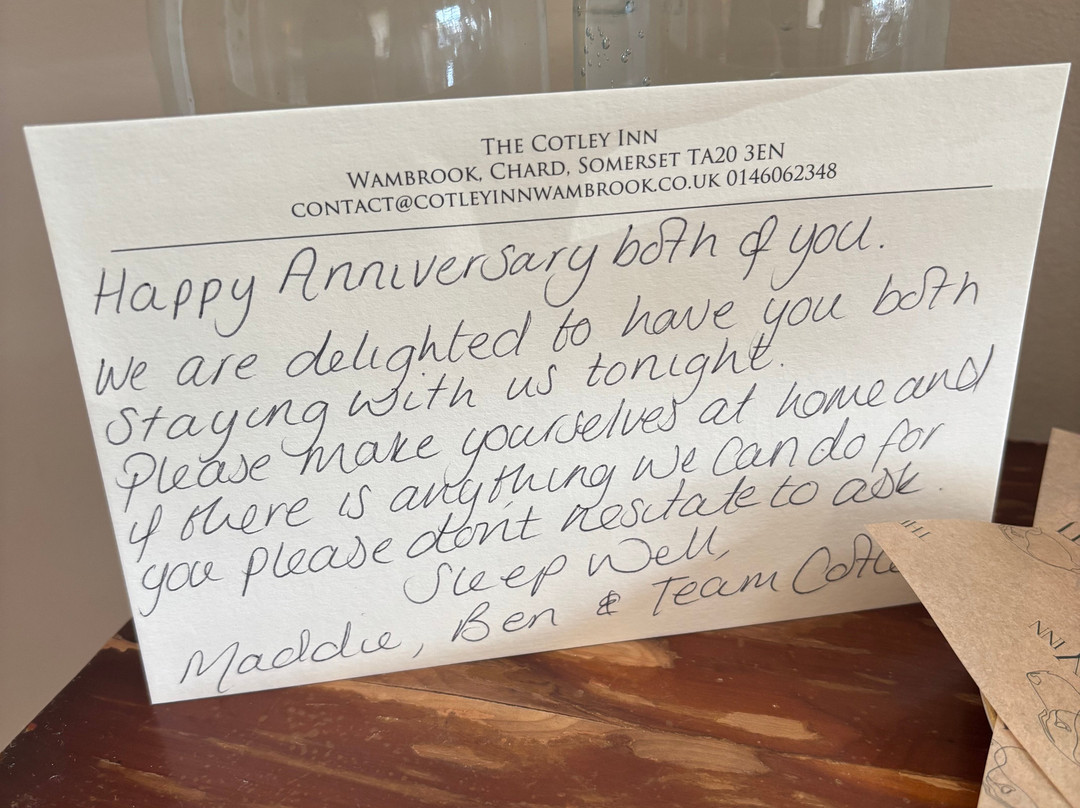 THE COTLEY INN
WAMBROOK, CHARD, SOMERSET TA20 3EN
CONTACT@COTLEYINNWAMBROOK.CO.UK 0146062348
Happy Anniversary both of you.
We are delighted to have you both
staying with us tonight.
Please make yourselves at home and
if there is anything we can do for
you please don't hesitate to ask.
Sleep Well,
Maddie, Ben & Team Cotle
INN